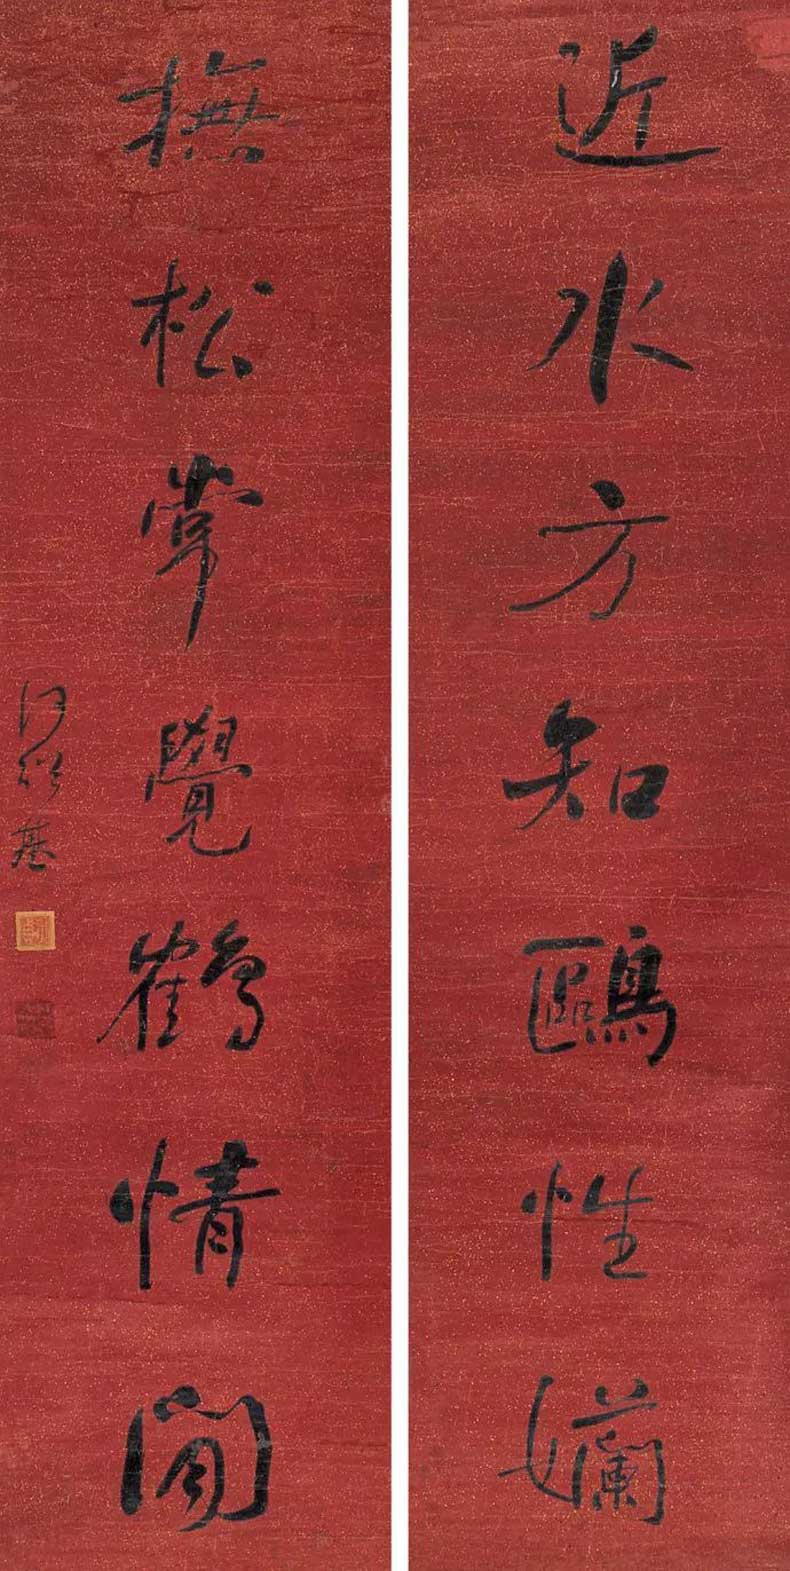 近水方知鷗性孄
撫松常覺鶴情閒
何紹基